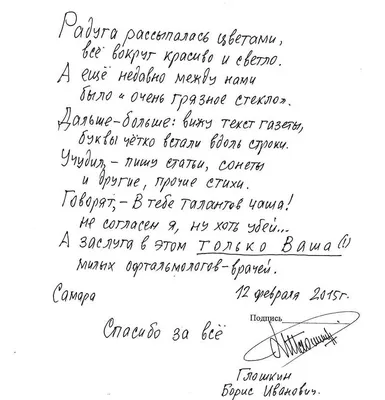 Радуга рассыпалась цветами,
всё вокруг красиво и светло.
А ещё недавно между нами
было «очень грязное стекло».
Дальше-больше: вижу текст газеты,
буквы чётко встали вдоль строки.
Учудил, – пишу статьи, сонеты
и другие, прочие стихи.
Говорят, – В тебе талантов чаша!
не согласен я, ну хоть убей...
А заслуга в этом только Ваша (!)
милых офтальмологов-врачей.
Самара 12 февраля 2015г.
Подпись
Спасибо за всё
Глошкин
Борис Иванович.